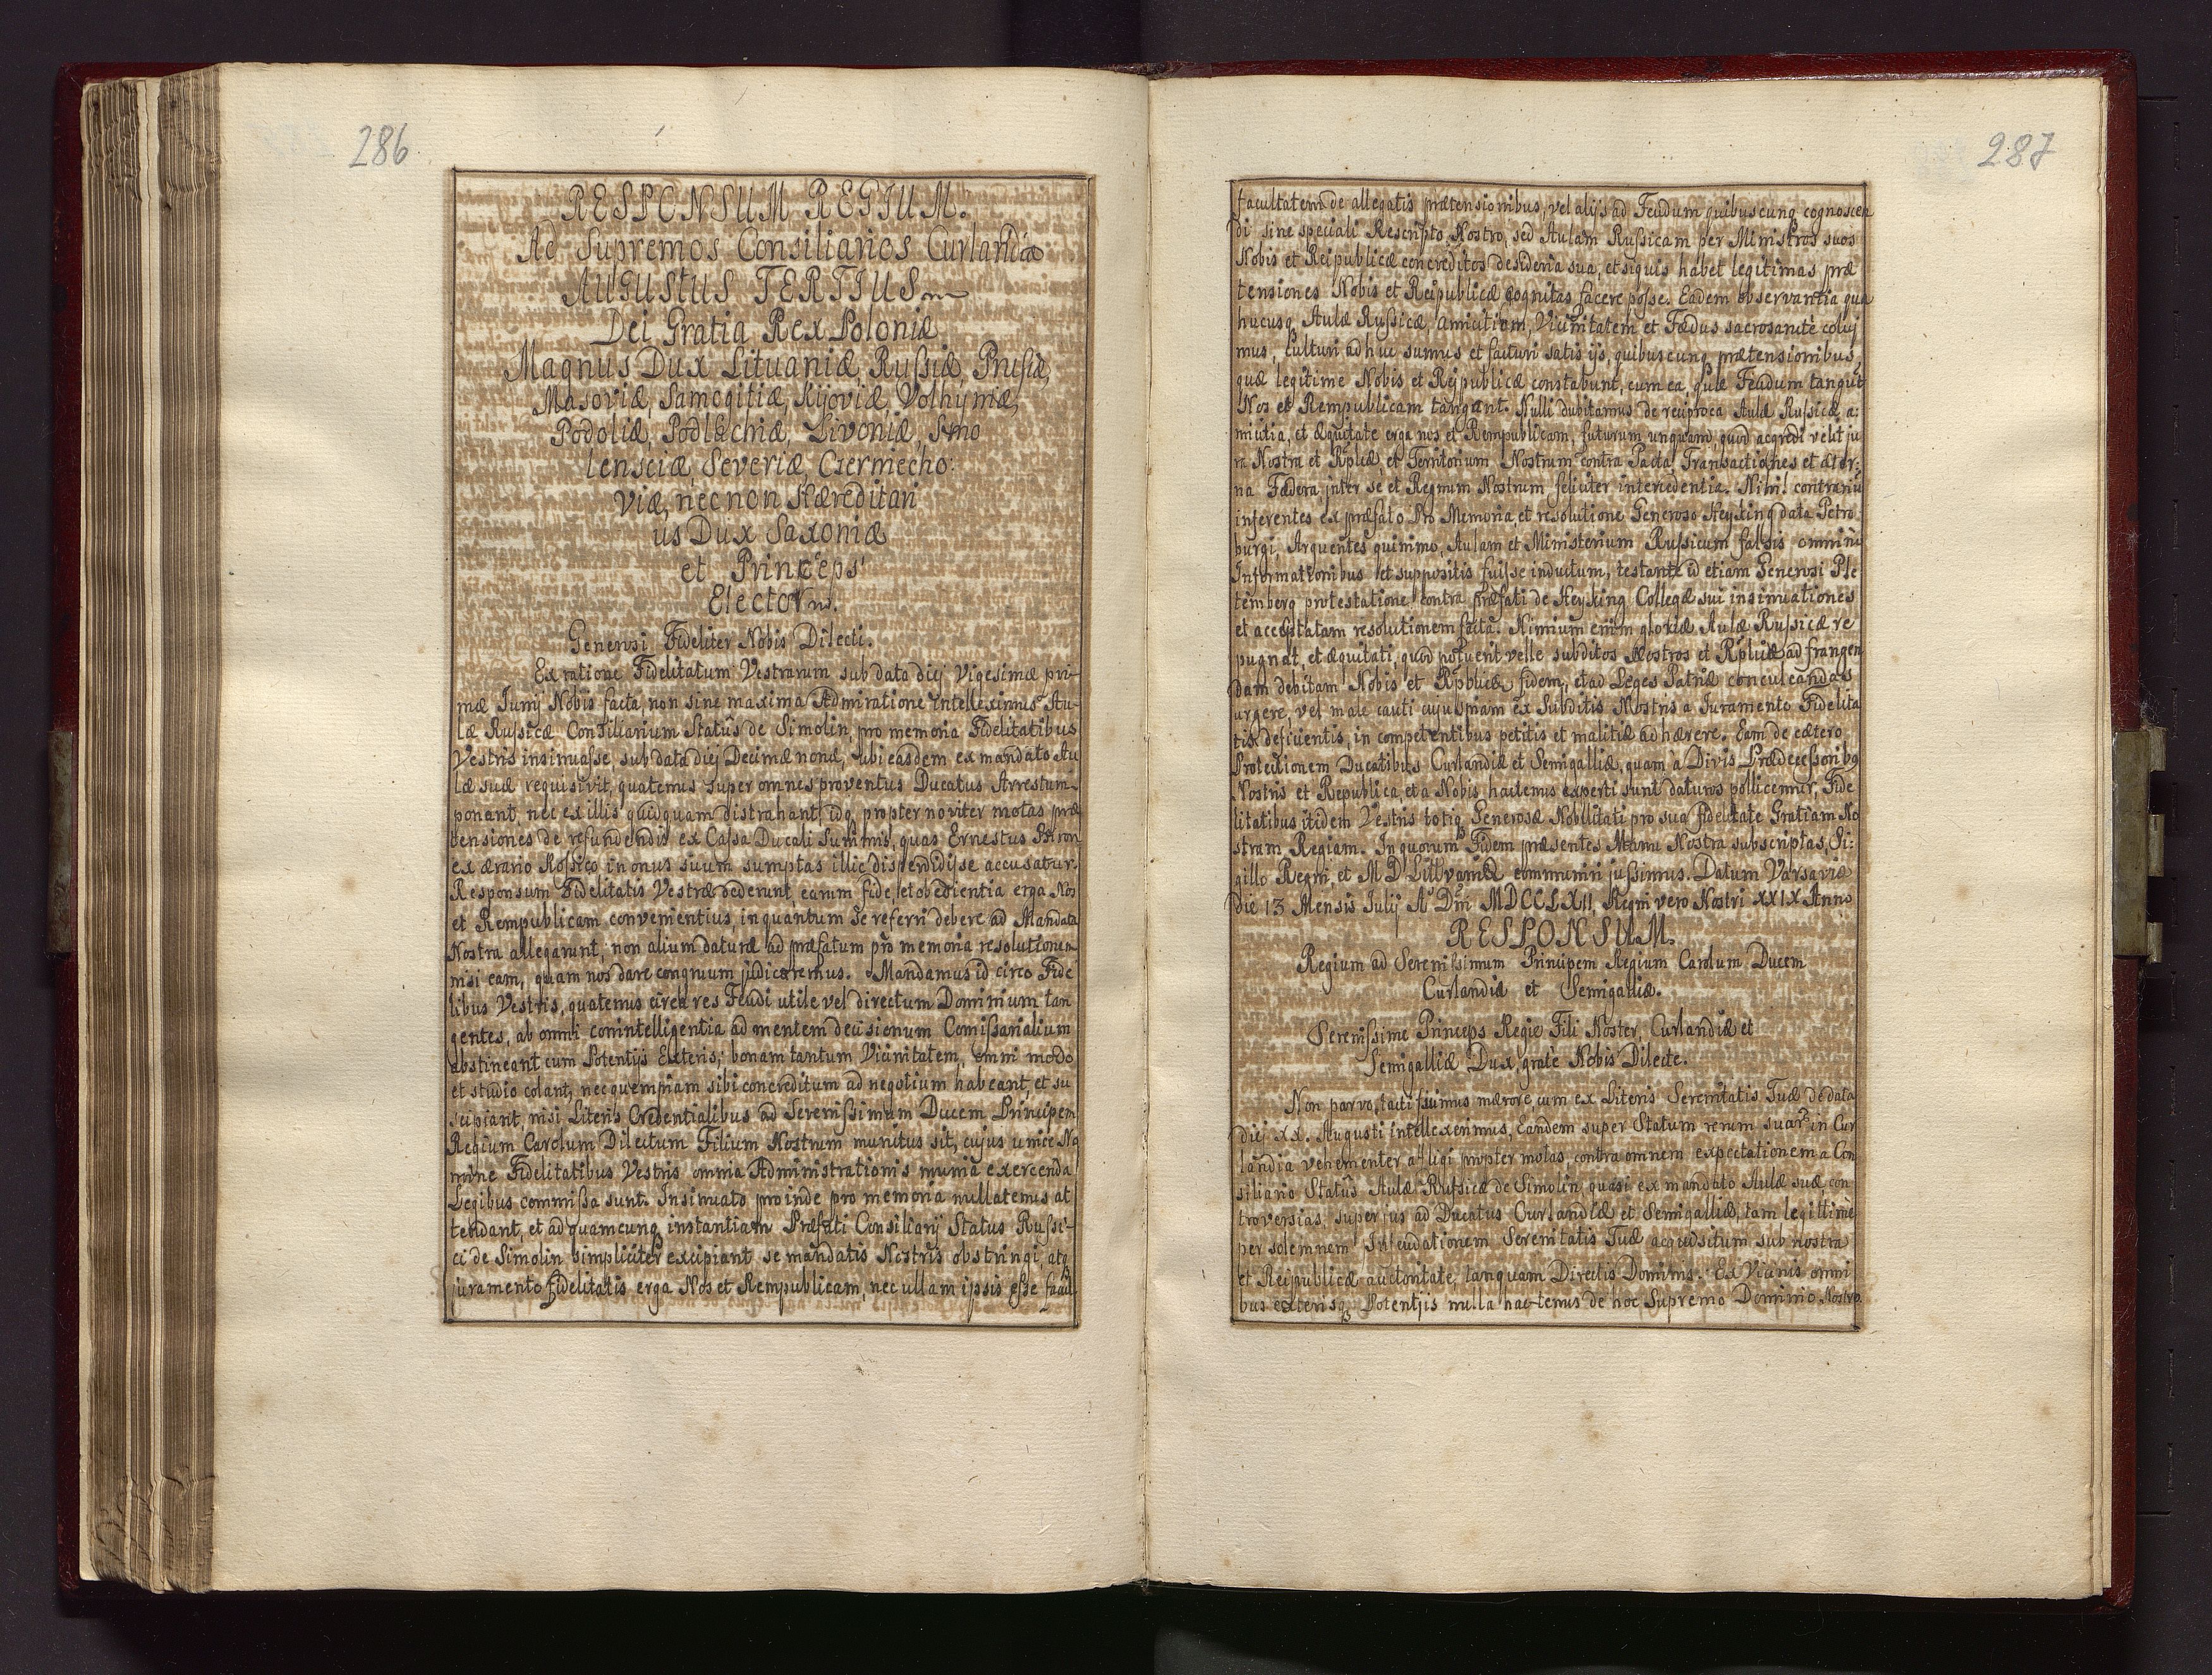 286
RESPONSUM REGIUM.
Ad Supremos Consiliarios Curlandiæ
AUGUSTUS TERTIUS
Dei Gratia Rex Poloniæ
Magnus Dux Lituaniæ, Russiæ, Prusiæ,
Masoviæ, Samogitiæ, Kijoviæ, Volhyniæ,
Podoliæ, Podlachiæ, Livoniæ, Smo
lensciæ, Severiæ, Czerniecho:
viæ, nec non Hæreditari
us Dux Saxoniæ
et Princeps
Elector.
Generosi Fideliter Nobis Dilecti.
Ex ratione Fidelitatum Vestrarum sub data diej Vigesimæ pri-
mæ Junij Nobis facta, non sine maxima Admiratione intelleximus Au-
læ Russicæ Consiliarium Statûs de Simolin, pro memoria Fidelitatibus
Vestris insinuasse, sub data diej Decimæ nonæ, ubi easdem ex mandato Au
læ suæ requisivit, quatenus super omnes proventus Ducatus Arrestum
ponant, nec ex illis quidquam distrahant, idq propter noviter motas præ
tensiones de refundendis ex Cassa Ducali Summis, quas Ernestus Biron
ex ærario Rossico in onus suum sumptas illic dispendidisse accusatur.
Responsum Fidelitatis Vestræ dederunt, earum fide, et obedientia erga Nos
et Rempublicam convenientius, in quantum se referri debere ad Mandata
Nostra allegarunt, non alium daturæ ad præfatum pro memoria resolutionem
nisi eam, quam nos dare congruum judicaremus. Mandamus id circo Fide
libus Vestris, quatenus circa res Feudi utile vel directum Dominium tan
gentes, ab omni conintelligentia ad mentem decisionum Comissarialium
abstineant cum Potentijs Exteris, bonam tantum Vicinitatem, omni modo
et studio colant, nec quempiam sibi concreditum ad negotium habeant, et su
scipiant, nisi Literis Credentialibus ad Serenissimum Ducem Principem
Regium Carolum Dilectum Filium Nostrum munitus sit, cujus unice No
mine Fidelitatibus Vestris omnia Administrationis munia exercenda
Legibus commissa sunt. Insinuato proinde pro memoria nullatenus at
tendant, et ad quamcunq instantiam Præfati Consiliarij Status Russi-
ci de Simolin simpliciter excipiant se mandatis Nostris obstringi, atq
juramento fidelitatis erga Nos et Rempublicam, nec ullam ipsis esse facul
287
facultatem de allegatis prætensionibus, vel alijs ad Feudum quibuscunq cognoscen
di sine speciali Rescripto Nostro, sed Aulam Russicam per Ministros suos
Nobis et Reipublicæ concreditos desideria sua, et siquis habet legitimas præ
tensiones Nobis et Reipublicæ cognitas facere posse. Eadem observantia qua
hucusq Aulæ Russicæ, amicitiam, Vicinitatem et Fœdus sacrosanctè coluj
mus, culturi adhuc sumus et facturi satis ijs, quibuscunq prætensionibus,
quæ legitime Nobis et Rejpublicæ constabunt, cum ea, quæ Feudum tangut
Nos et Rempublicam tangant. Nulli dubitamus de reciproca Aulæ Russicæ a:
micitia, et æquitate erga nos et Rempublicam, futurum unquam, quod acgredi velit ju
ra Nostra et Rplicæ, et Territorium Nostrum contra Pacta, Transactiones et æter:
na Fœdera inter se et Regnum Nostrum feliciter intercedentia. Nihil contrariũ
inferentes ex præfato Pro Memoria, et resolutione Generoso Heyking data Petro
burgi, Arguentes quinimo, Aulam et Ministerium Russicum falsis omnino
Informationibus et suppositis fuisse inductum, testante id etiam Generosi Ple
temberg protestatione contra præfati de Heyking Collegæ sui insinuationes
et acceptatam resolutionem facta. Nimium enim gloriæ Aulæ Russicæ re
pugnat, et æquitati, quod potuerit velle subditos Nostros et Rplicæ ad frangen
dam debitam Nobis et Rpblicæ fidem, et ad Leges Patriæ conculcandas
urgere, vel male cauti cujuspiam ex Subditis Nostris a Juramento Fidelita
tis deficientis, in competentibus petitis et malitiæ adhærere. Eam de cætero
Protectionem Ducatibus Curlandiæ et Semigalliæ, quam à Divis Prædecessoribq
Nostris et Republica et a Nobis hactenus experti sunt daturos pollicemur, Fide
litatibus itidem Vestris totiq Generosæ Nobilitati pro sua fidelitate Gratiam No
stram Regiam. In quorum Fidem præsentes Manu Nostra subscriptas, Si:
gillo Regni, et M D Littvaniæ communiri jussimus. Datum Varsaviæ
Die 13 Mensis Julij Aº Dni MDCCLXII, Regni vero Nostri XXIX Anno
RESPONSUM.
Regium ad Serenissimum Principem Regium Carolum Ducem
Curlandiæ et Semigalliæ.
Serenissime Princeps Regie Fili Noster, Curlandiæ et
Semigalliæ Dux, gratè Nobis Dilecte.
Non parvo, tacti fuimus mærore, cum ex Literis Serenitatis Tuæ de data
diej xx. Augusti intellexerimus, Eandem super Statum rerum suar in Cur
landia vehementer afligi propter motas, contra omnem expectationem a Con
siliario Statûs Aulæ Russicæ de Simolin, quasi ex mandato Aulæ suæ con
troversias, super jus ad Ducatus Curlandiæ et Semigalliæ, tam legittimè
per solemnem Infeudationem Serenitatis Tuæ acquisitum, sub nostra
et Reipublicæ auctoritate, tanquam Directis Dominis. Ex Vicinis omni
bus exterisq Potentjis nulla hactenus de hoc Supremo Dominio Nostro